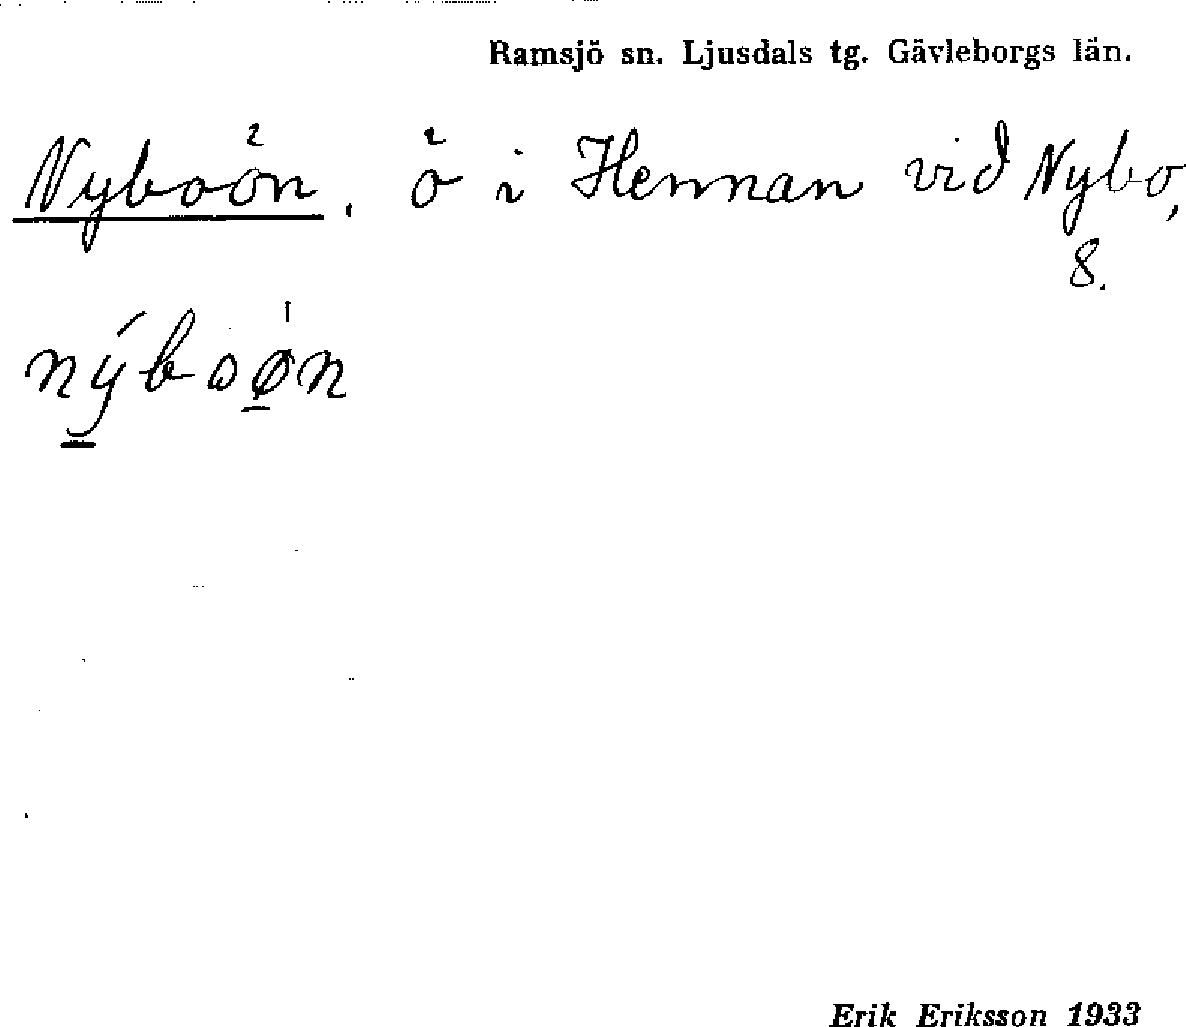 Ramsjö sn. Ljusdals tg. Gävleborgs län.
Nyboön. ö i Hennan vid Nybo,
8.
nýboø̱n
Erik Eriksson 1933